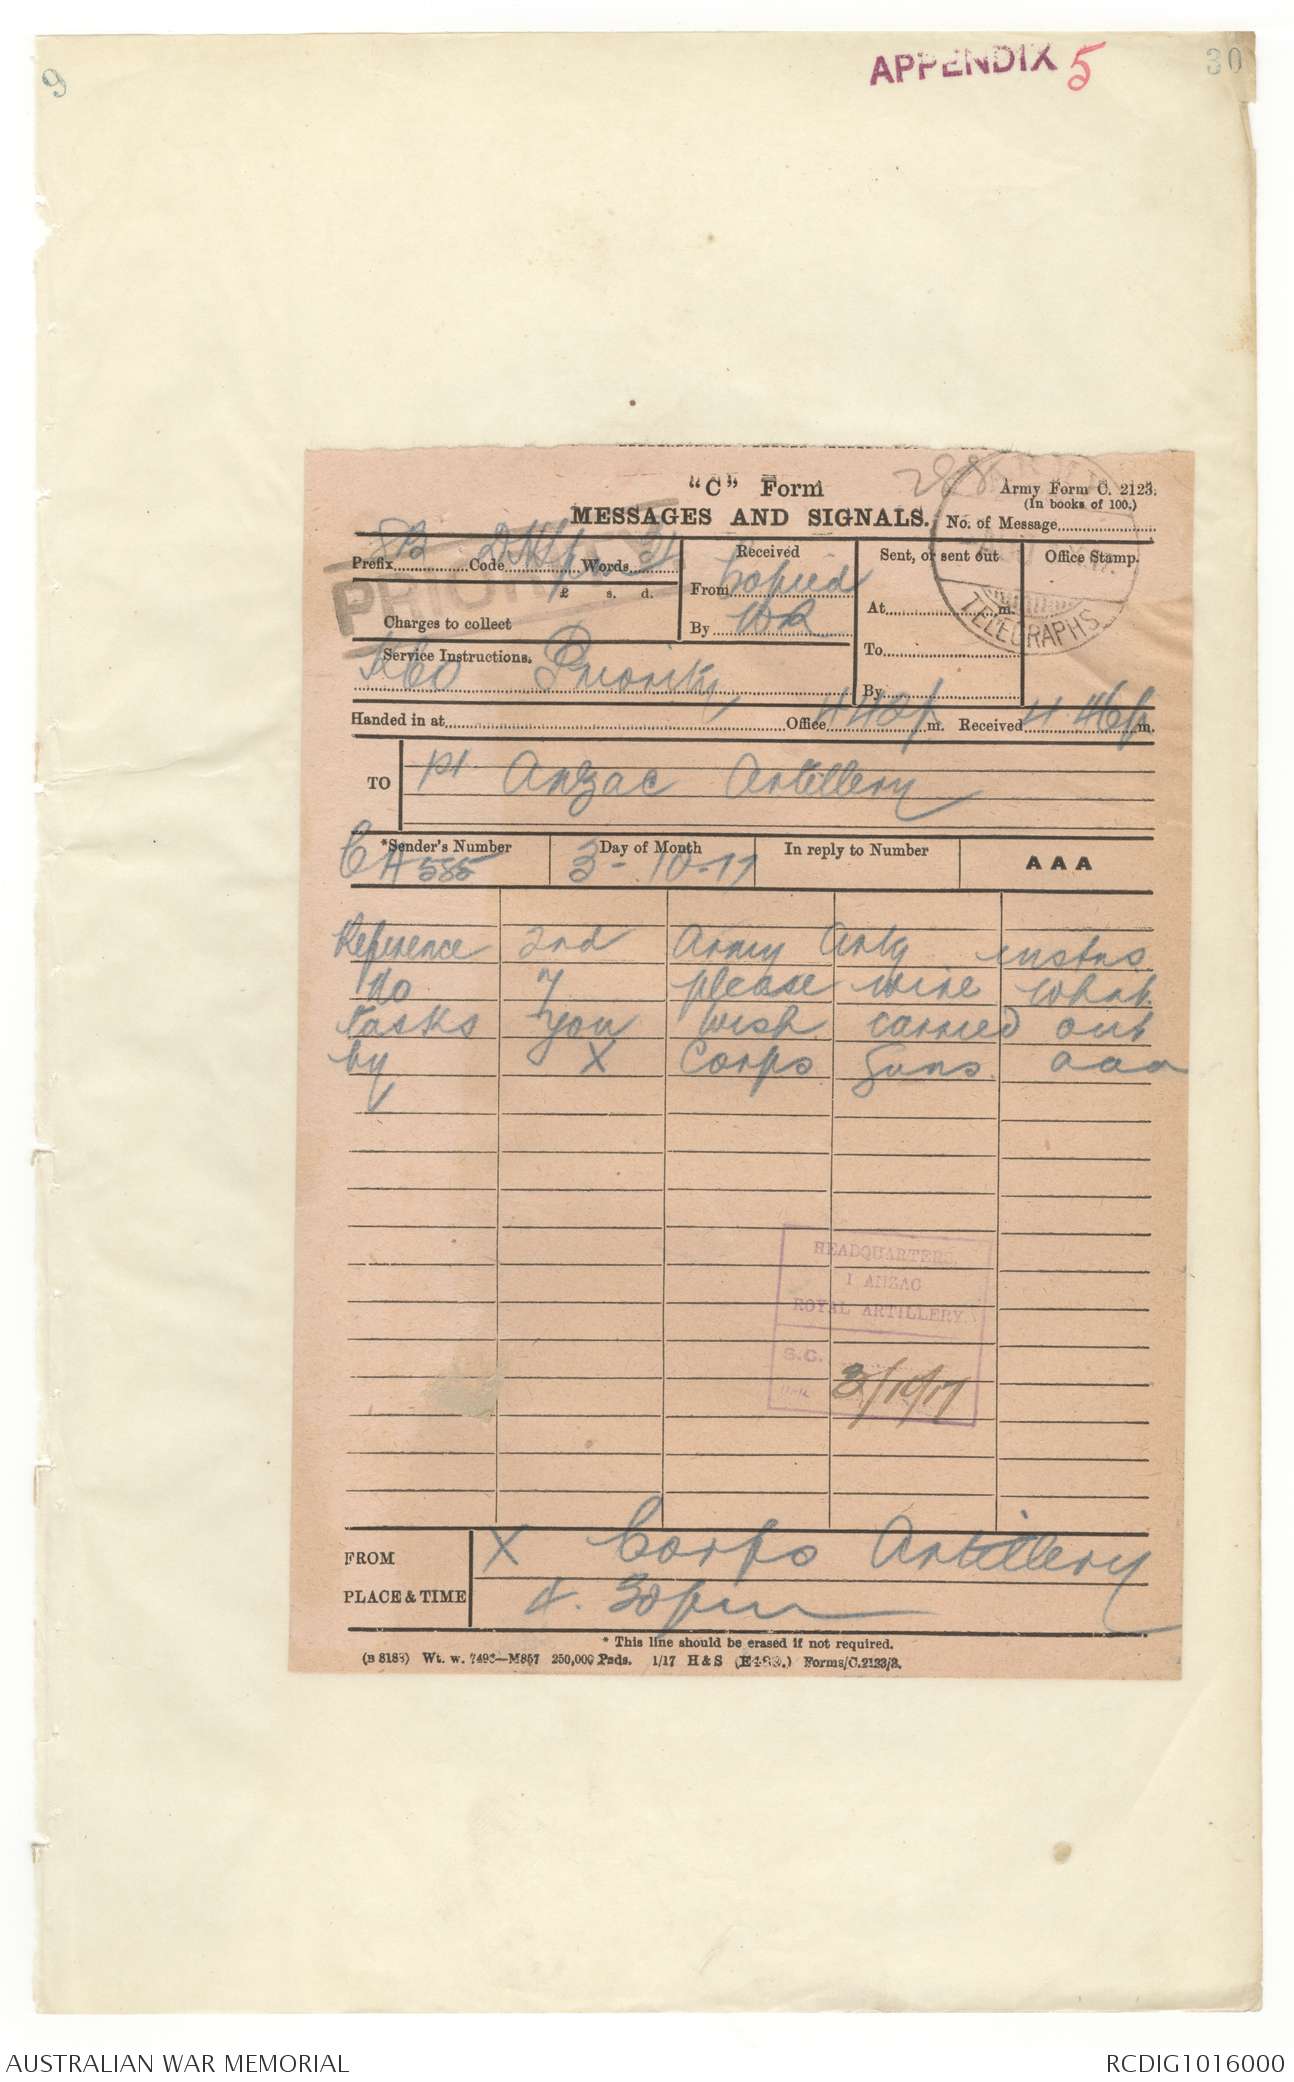 9
APPENDIX 5
30
"C" Form
Army Form C. 2123.
(In books of 100.)
MESSAGES AND SIGNALS.
No. of Message
Prefix SB Code Words 31
£ s. d.
Charges to collect
PRIORITY
Received
From Copied
By
Sent, or sent out
At m.
To
By
Office Stamp.
TELEGRAPHS
Service Instructions.
Priority
Handed in at Office 4 40 p m. Received 4 46 p m.
TO
1st Anzac Artillery
*Sender's Number
Day of Month
In reply to Number
AAA
CA 585
3-10-17
Reference 2nd Army Arty instns
No 7 please wire what
tasks you wish carried out
by X Corps Guns aaa
HEADQUARTERS,
I ANZAC
ROYAL ARTILLERY.
S.C.
3/10/17
FROM
X Corps Artillery
PLACE & TIME
4. 30 pm
* This line should be erased if not required.
(B 8183) Wt. w. 7493—M857 250,000 Pads. 1/17 H & S (E 483.) Forms/C.2123/3.
AUSTRALIAN WAR MEMORIAL
RCDIG1016000